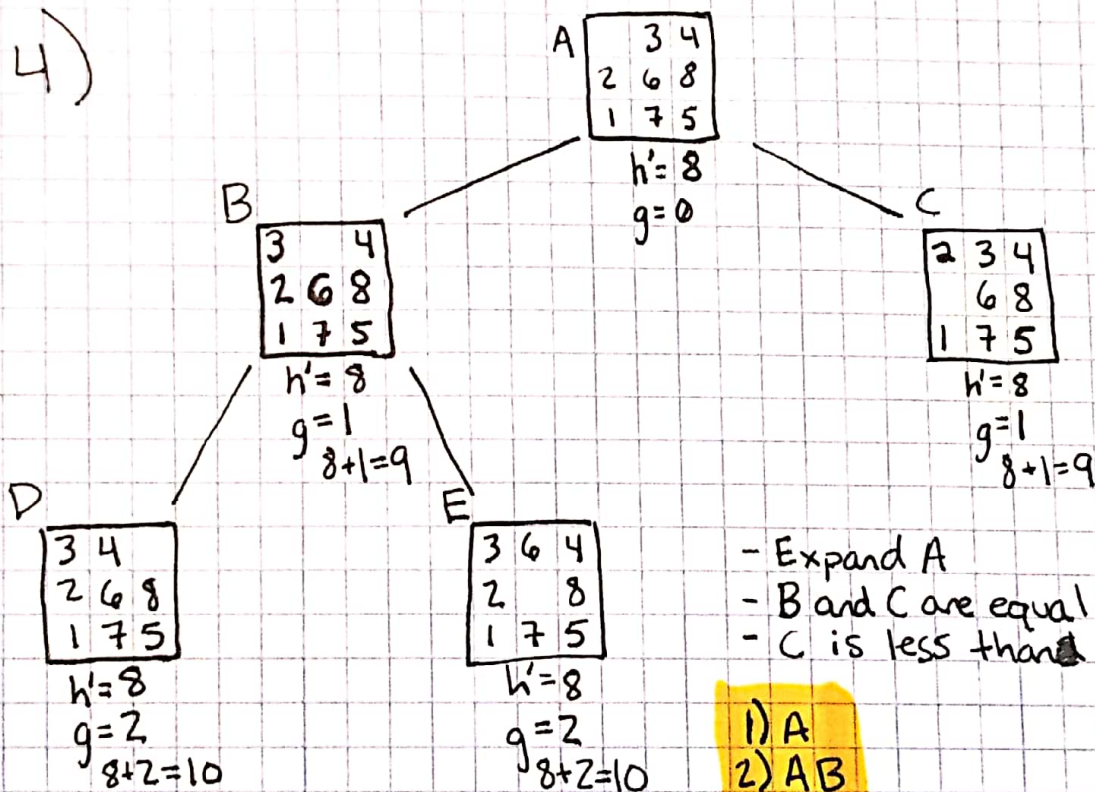 4)
A
3 4
2 6 8
1 7 5
h'= 8
g=0
B
3 4
2 6 8
1 7 5
h'= 8
g=1
8+1=9
C
2 3 4
6 8
1 7 5
h'= 8
g=1
8+1=9
D
3 4
2 6 8
1 7 5
h'=8
g=2
8+2=10
E
3 6 4
2 8
1 7 5
h'=8
g=2
8+2=10
- Expand A
- B and C are equal
- C is less than
1) A
2) AB